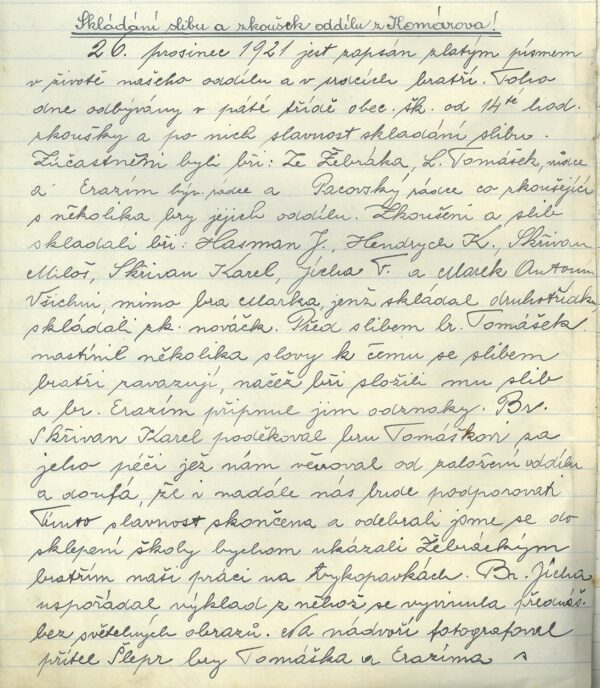 Skládání slibu a zkoušek oddílu z Komárova!
26. prosinec 1921 jest zapsán zlatým písmem
v životě našeho oddílu a v srdcích bratří. Toho
dne odbývány v páté třídě obec. šk. od 14té hod.
zkoušky a po nich slavnost skládání slibu.
Zúčastněni byli bří: Ze Žebráka, L. Tomášek, vůdce
a Erazím býv. rádce a Pacovský, rádce co zkoušející
s několika bry jejich oddílu. Zkoušeni a slib
skládali bří: Hasman J., Hendrych K., Skřivan
Miloš, Skřivan Karel, Jícha F. a Marek Antonín
Všichni, mimo bra Marka, jenž skládal druhotřídní,
skládali zk. nováčk. Před slibem br. Tomášek
nastínil několika slovy k čemu se slibem
bratři zavazují, načež bří složili mu slib
a br. Erazím připnul jim odznaky. Br.
Skřivan Karel poděkoval bru Tomáškovi za
jeho péči jež nám věnoval od založení oddílu
a doufá, že i nadále nás bude podporovati
Tímto slavnost skončena a odebrali jsme se do
sklepení školy bychom ukázali Žebráckým
bratřím naši práci na vykopávkách. Br. Jícha
uspořádal výklad z něhož se vyvinula přednáš.
bez světelných obrazů. Na nádvoří fotografoval
přítel Šlepr bry Tomáška a Erazíma